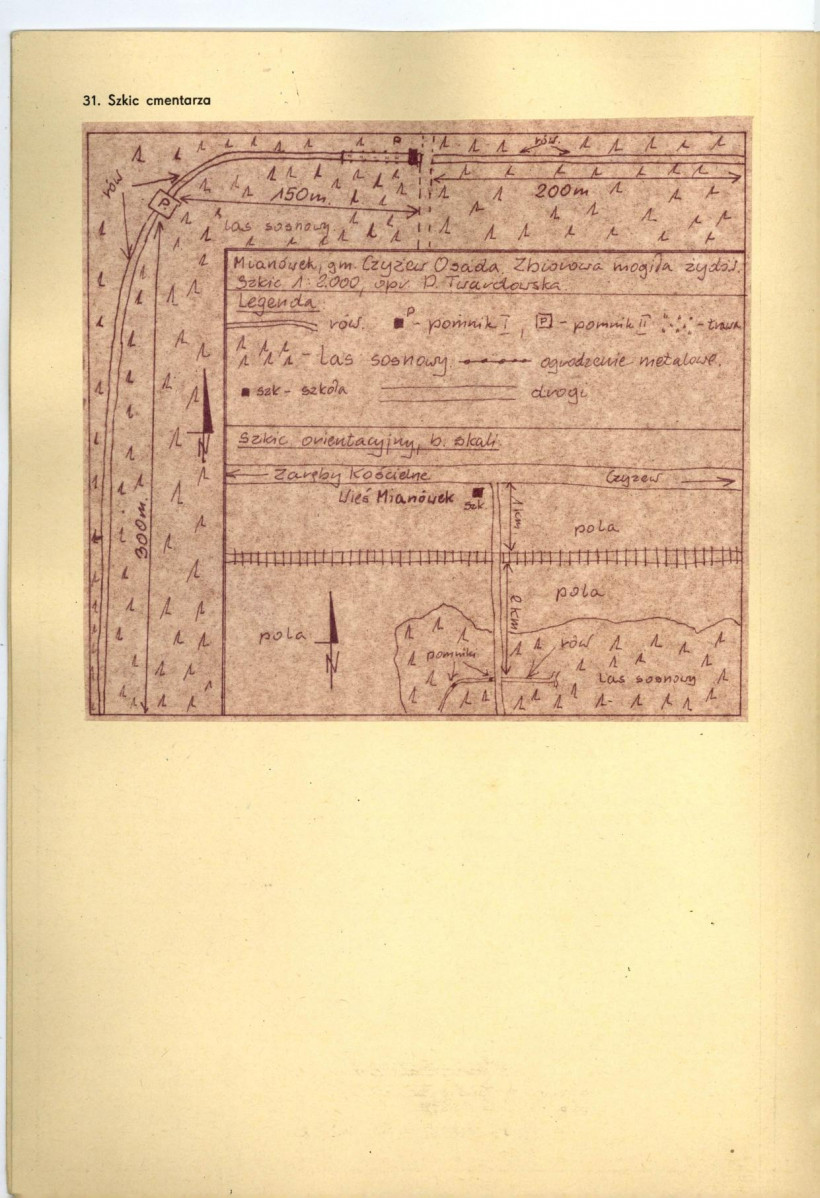 31. Szkic cmentarza
P
rów.
rów
P.
150m.
200m
Las sosnowy
Mianówek, gm. Czyżew Osada, Zbiorowa mogiła żydów.
Szkic 1:2.000, opr. D. Twardowska
Legenda:
rów. P - pomnik I, P - pomnik II - trawa
- Las sosnowy ogrodzenie metalowe.
szk - szkoła drogi
N
Szkic orientacyjny, b. skali.
Zaręby Kościelne Czyżew
Wieś Mianówek szk.
1km
pola
300m.
pola
2km
pola
N
pomniki
rów
Las sosnowy